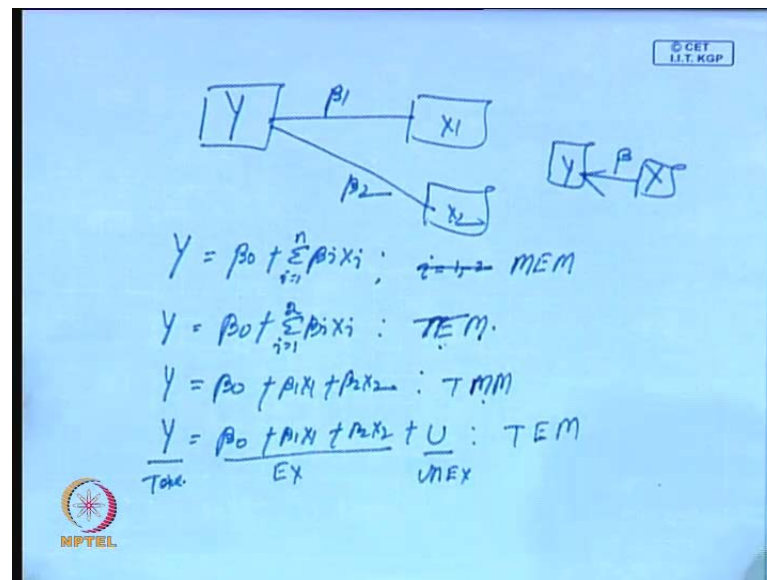 © CET
I.I.T. KGP
Y β1 X1
β2 X2
Y β X
Y = β0 + Σ i=1 n βi Xi ; MEM
Y = β0 + Σ i=1 2 βi Xi : TEM.
Y = β0 + β1X1 + β2X2 : TMM
Y = β0 + β1X1 + β2X2 + U : TEM
EX UNEX
NPTEL